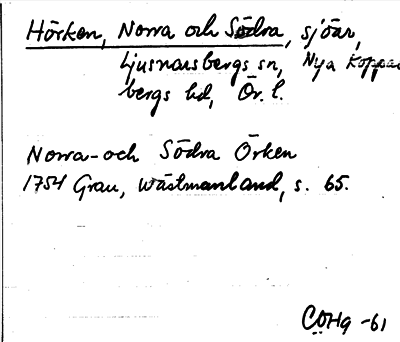 Hörken, Norra och Södra, sjöar,
Ljusnarsbergs sn, Nya Koppar
bergs hd, Ör. l.
Norra- och Södra Örken
1754 Grau, Wästmanland, s. 65.
COHg -61